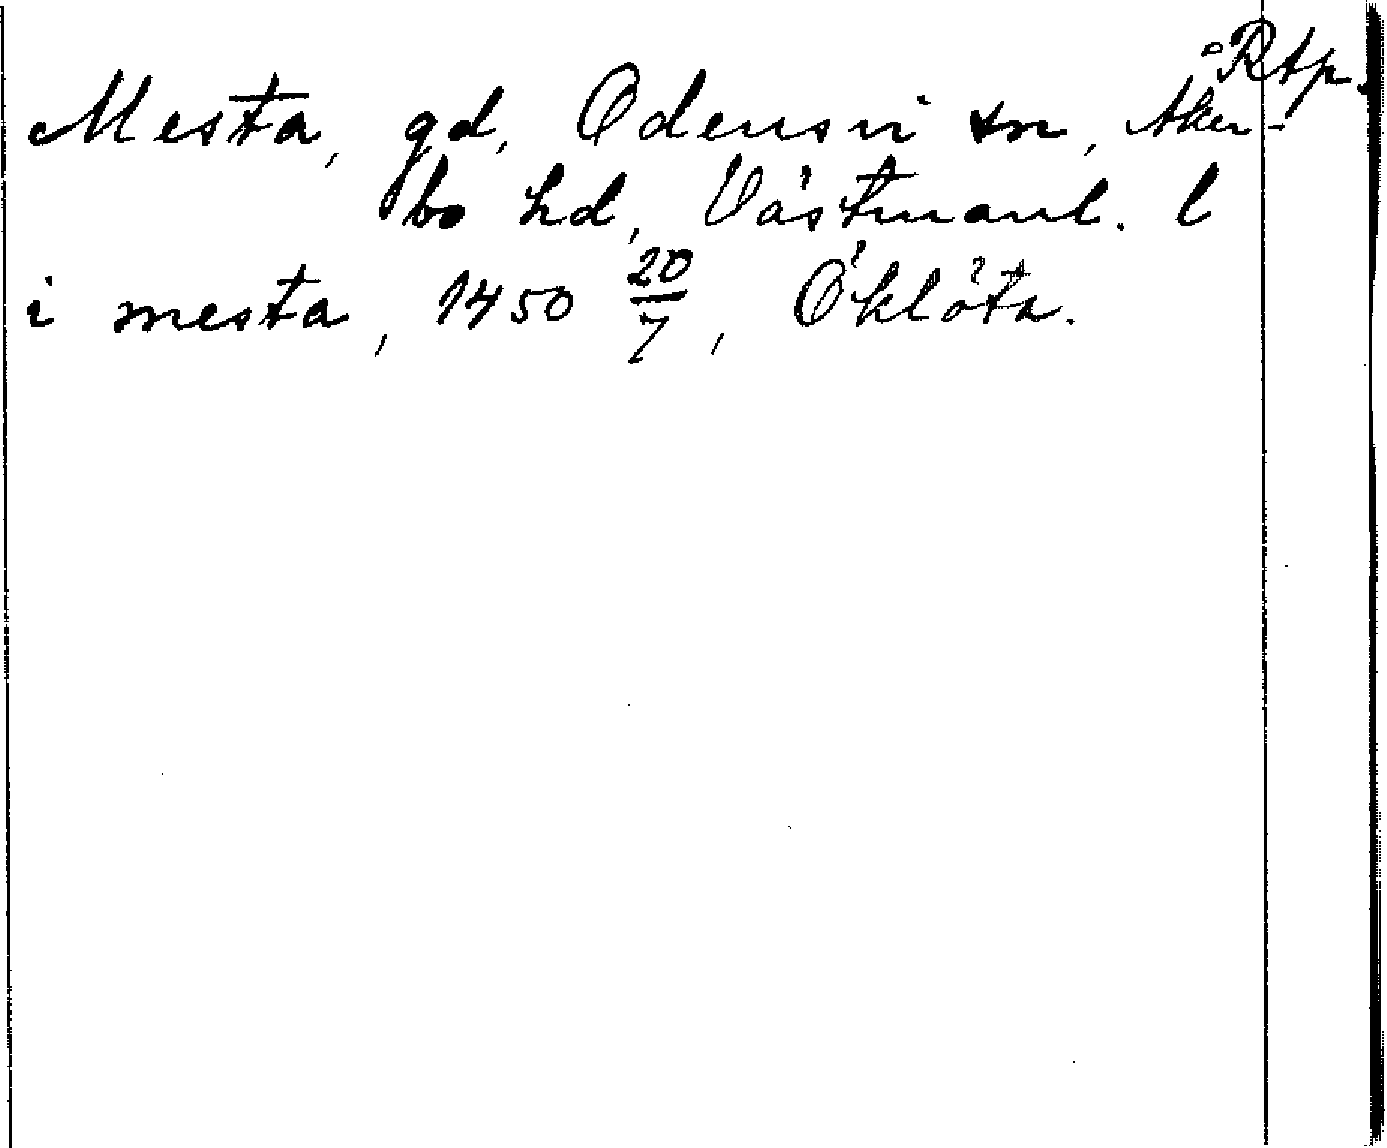 Rtp.
Mesta, gd, Odensvi sn, Åker-
bo hd, Västmanl. l
i mesta, 1450 20/7, Öklöta.